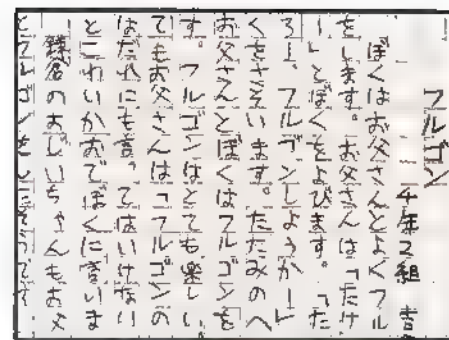 フルゴン
4年2組 吉
ぼくはお父さんとよくフル
をします。お父さんは「たけ
ー」とぼくをよびます。「た
ろー、フルゴンしようかー」
くをさそいます。たたみのへ
お父さんとぼくはフルゴンを
す。フルゴンはとても楽しい。
てもお父さんは「フルゴンの
はだれにも言ってはいけない
とこわいかおでぼくに言いま
鎌倉のおじいちゃんもお父
とフルゴンをしたそうです